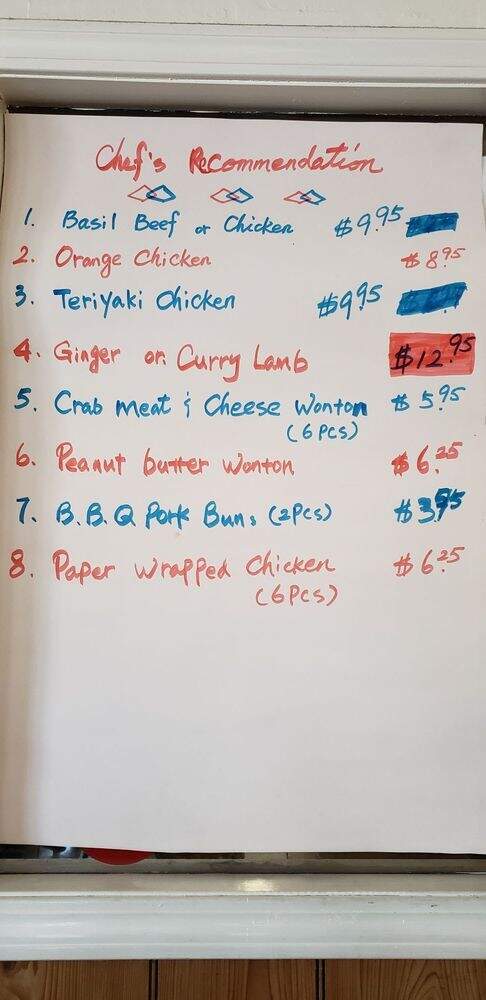 Chef's Recommendation
1. Basil Beef or Chicken $9.95
2. Orange Chicken $8.95
3. Teriyaki Chicken $9.95
4. Ginger or Curry Lamb $12.95
5. Crab meat & Cheese Wonton $5.95
(6 Pcs)
6. Peanut butter Wonton $6.25
7. B.B.Q Pork Buns (2Pcs) $3.95
8. Paper Wrapped Chicken $6.25
(6 Pcs)